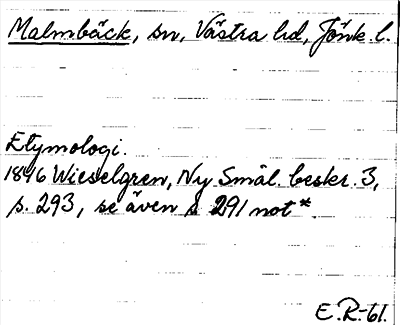 Malmbäck, sn, Västra hd, Jönk. l.
Etymologi.
1846 Wieselgren, Ny Smål. beskr. 3,
s. 293, se även s 291 not*.
E.R.-61.